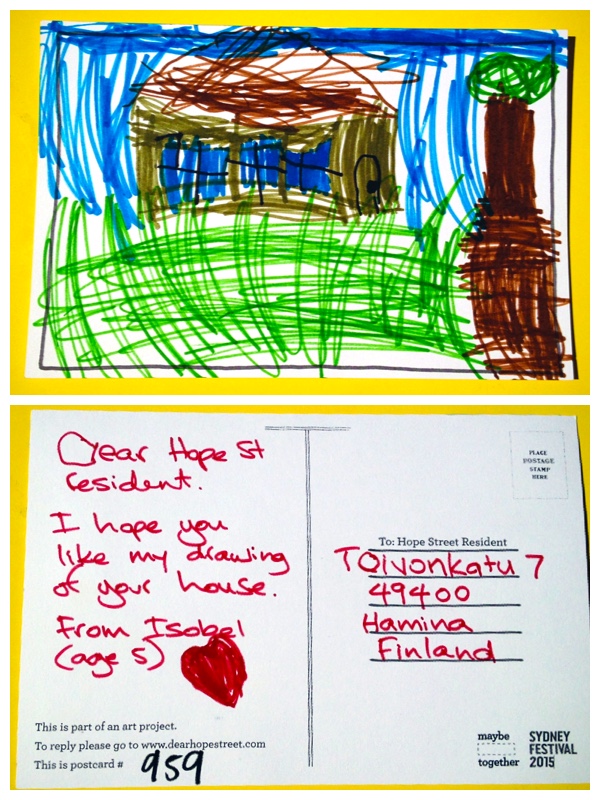 Dear Hope St
resident.
I hope you
like my drawing
of your house.
From Isobel
(age 5)
This is part of an art project.
To reply please go to www.dearhopestreet.com
This is postcard # 959
PLACE
POSTAGE
STAMP
HERE
To: Hope Street Resident
TOivonkatu 7
49400
Hamina
Finland
maybe
together
SYDNEY
FESTIVAL
2015